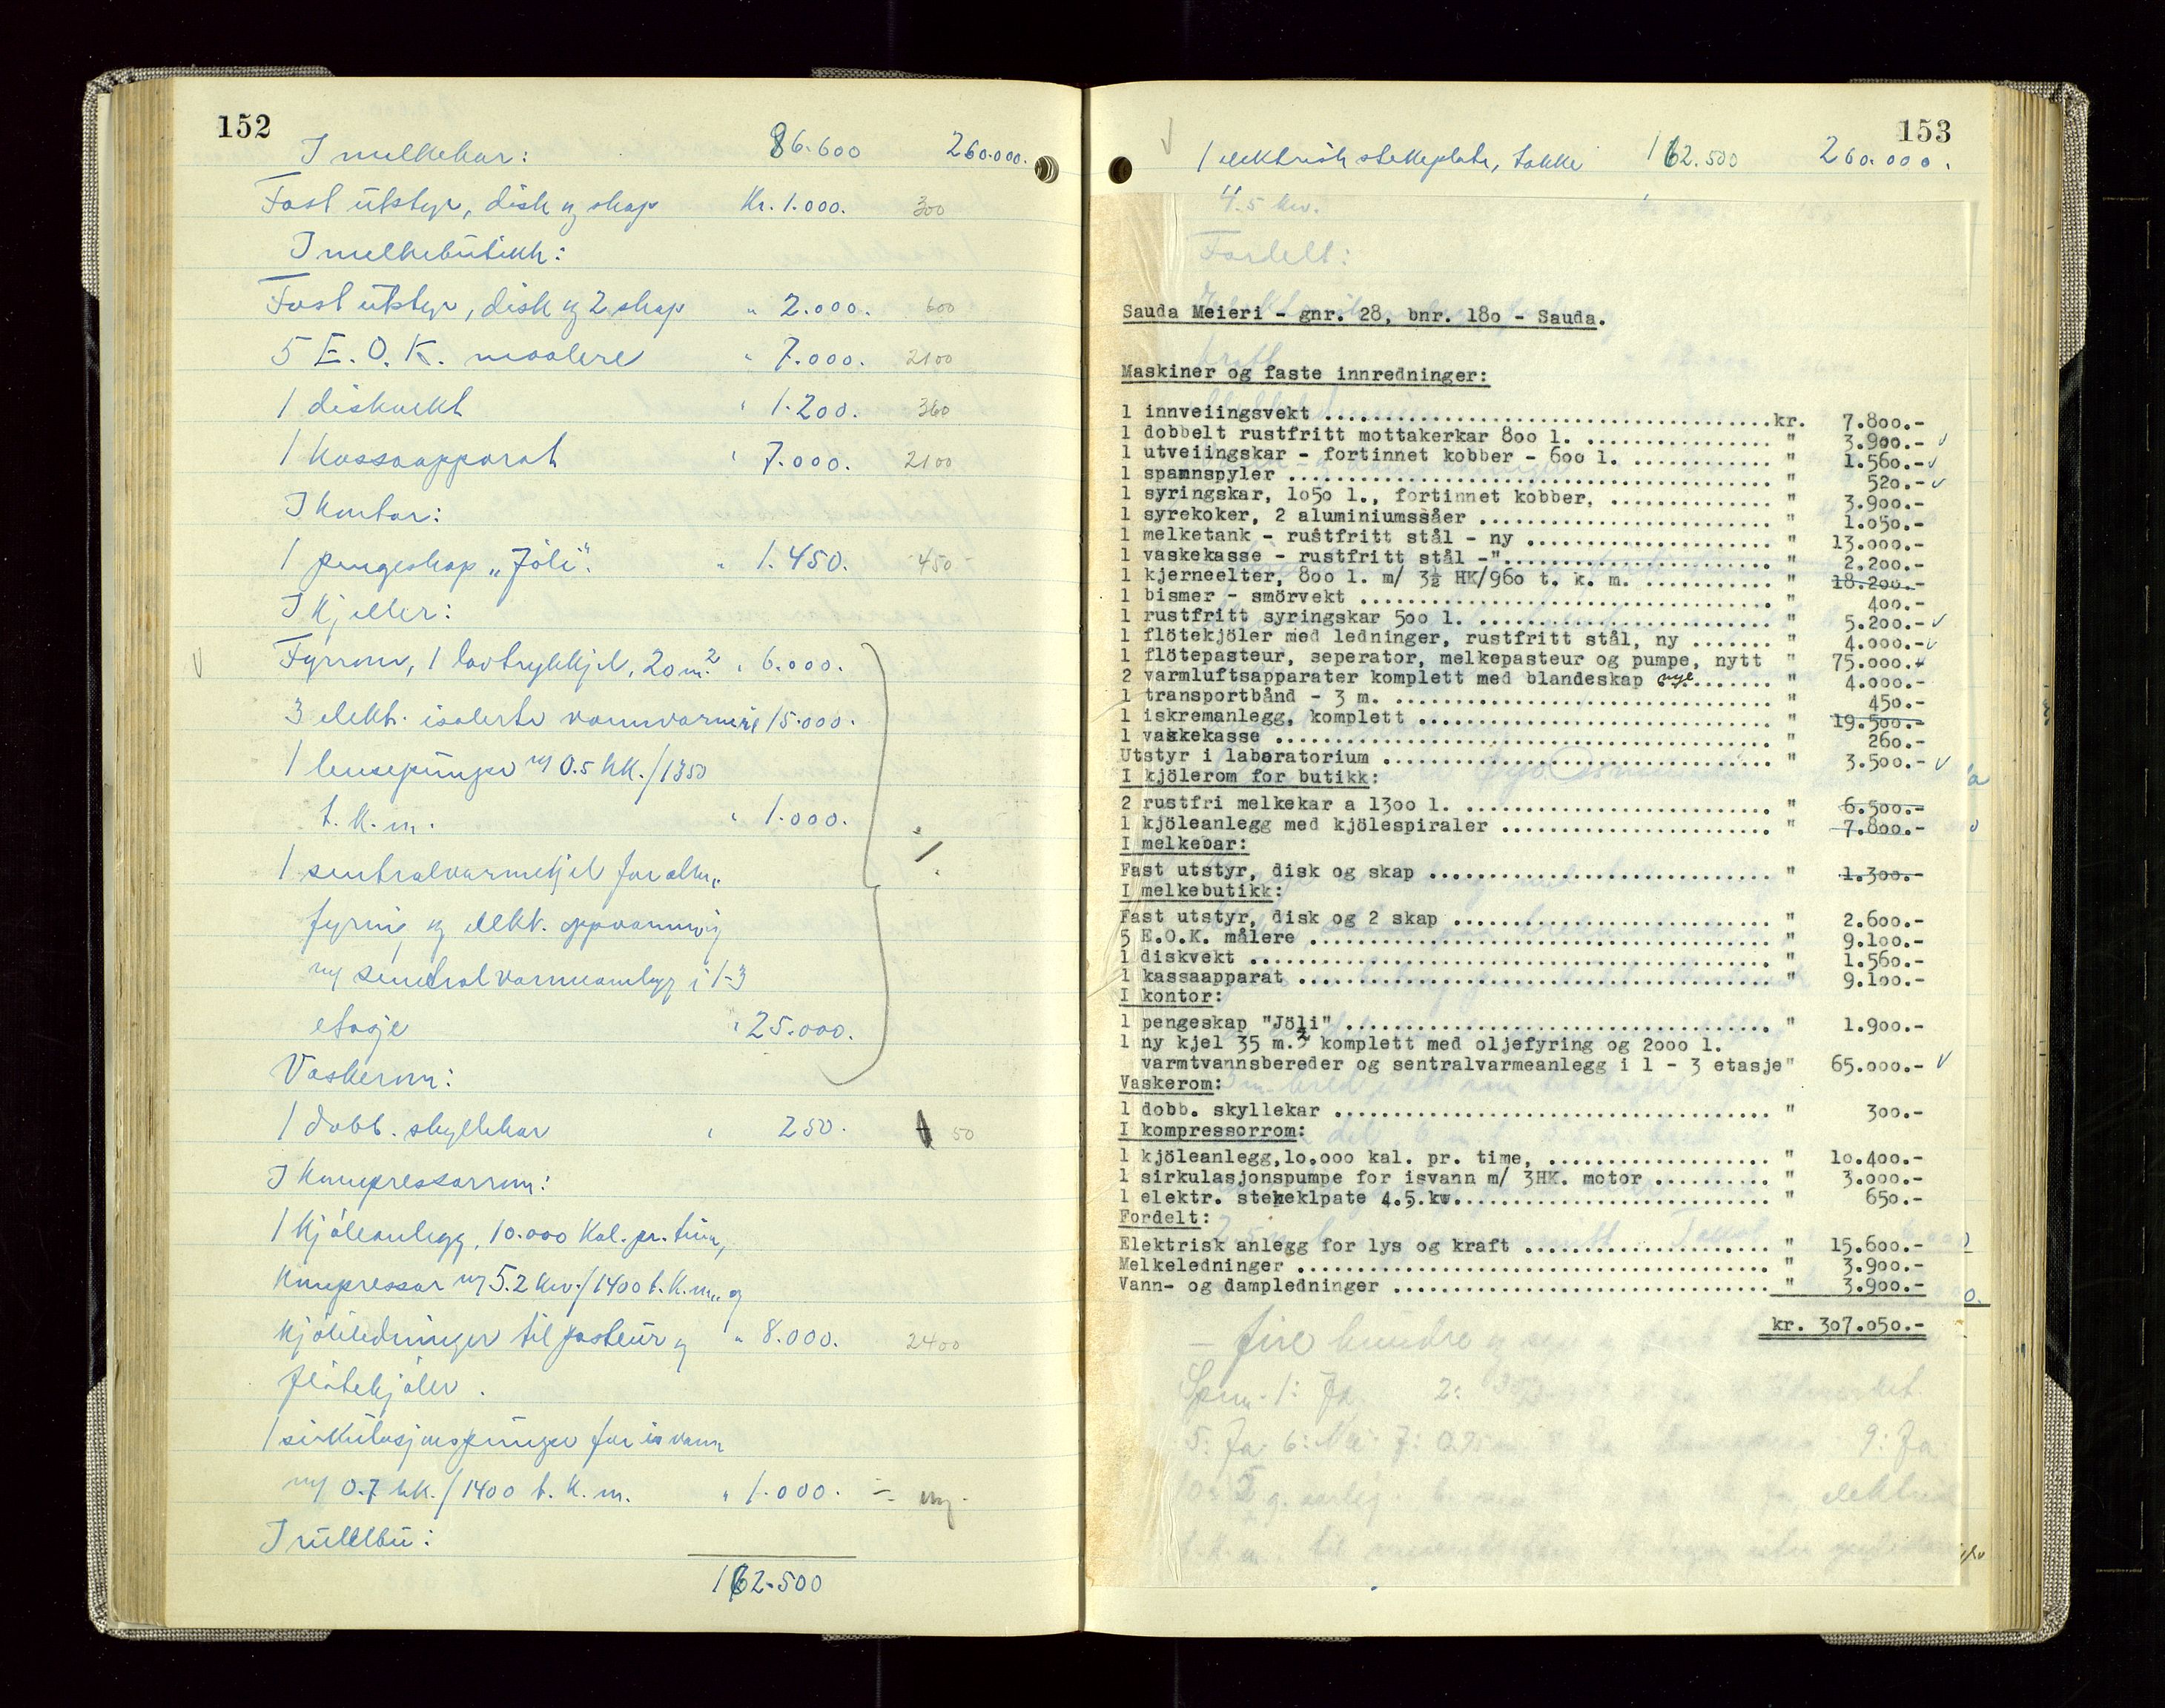 152
I melkebar: 86.600 260.000.
Fast utstyr, disk og skap Kr. 1.000. 300
I melkebutikk:
Fast utstyr, disk og 2 skap " 2.000. 600
5 E.O.K. maalere " 7.000. 2100
1 diskvekt " 1.200. 360
1 kassaapparat " 7.000. 2100
I kontor:
1 pengeskap "Jöli". " 1.450. 450
I kjeller:
Fyrrom, 1 lavtrykkkjel, 20 m.² " 6.000.
3 elekt. isolerte varmvarmere 15.000.
1 lensepumpe m/ 0.5 hk./1350
t.k.m. " 1.000.
1 sentralvarmekjel for alm.
fyring og elekt. oppvarming
m/ sentralvarmeanlegg i 1-3
etasje " 25.000.
Vaskerom:
1 dobb. skyllekar " 250. 50
I kompressorrom:
1 kjöleanlegg, 10.000 kal. pr. time,
kompressor m/ 5.2 kw./1400 t.k.m. og
kjöleledninger til pasteur og " 8.000. 2400
flötekjöler.
1 sirkulasjonspumpe for isvann
m/ 0.7 hk./1400 t.k.m. " 1.000. - ny.
I rullebu:
162.500
153
1 elektrisk stekeplate, takke 162.500 260.000.
4.5 kw.
Fordelt:
Sauda Meieri - gnr. 28, bnr. 180 - Sauda.
Maskiner og faste innredninger:
1 innveiingsvekt ........ kr. 7.800.-
1 dobbelt rustfritt mottakerkar 800 l. ........ " 3.900.- v
1 utveiingskar - fortinnet kobber - 600 l. ........ " 1.560.- v
1 spannspyler ........ " 520.- v
1 syringskar, 1050 l., fortinnet kobber, ........ " 3.900.-
1 syrekoker, 2 aluminiumssåer ........ " 1.050.-
1 melketank - rustfritt stål - ny ........ " 13.000.-
1 vaskekasse - rustfritt stål -"........ " 2.200.-
1 kjerneelter, 800 l. m/ 3½ HK/960 t. k. m. ........ " 18.200.-
1 bismer - smörvekt ........ " 400.-
1 rustfritt syringskar 500 l. ........ " 5.200.- v
1 flötekjöler med ledninger, rustfritt stål, ny ....... " 4.000.- v
1 flötepasteur, seperator, melkepasteur og pumpe, nytt " 75.000.-
2 varmluftsapparater komplett med blandeskap nye ........ " 4.000.-
1 transportbånd - 3 m. ........ " 450.-
1 iskremanlegg, komplett ........ " 19.500.-
1 vaskekasse ........ " 260.-
Utstyr i laboratorium ........ " 3.500.- v
I kjölerom for butikk:
2 rustfri melkekar a 1300 l. ........ " 6.500.-
1 kjöleanlegg med kjölespiraler ........ " 7.800.-
I melkebar:
Fast utstyr, disk og skap ........ " 1.300.-
I melkebutikk:
Fast utstyr, disk og 2 skap ........ " 2.600.-
5 E.O.K. målere ........ " 9.100.-
1 diskvekt ........ " 1.560.-
1 kassaapparat ........ " 9.100.-
I kontor:
1 pengeskap "Jöli" ........ " 1.900.-
1 ny kjel 35 m.² komplett med oljefyring og 2000 l.
varmtvannsbereder og sentralvarmeanlegg i 1 - 3 etasje" 65.000.- v
Vaskerom:
1 dobb. skyllekar ........ " 300.-
I kompressorrom:
1 kjöleanlegg,10.000 kal. pr. time, ........ " 10.400.-
1 sirkulasjonspumpe for isvann m/ 3HK. motor ........ " 3.000.-
1 elektr. stekeklpate 4.5.kw........ " 650.-
Fordelt:
Elektrisk anlegg for lys og kraft ........ " 15.600.-
Melkeledninger ........ " 3.900.-
Vann- og dampledninger ........ " 3.900.-
kr. 307.050.-
- fire hundre og
Spm. 1: Ja. 2:
5: Ja 6: Nei 7: 9: Ja